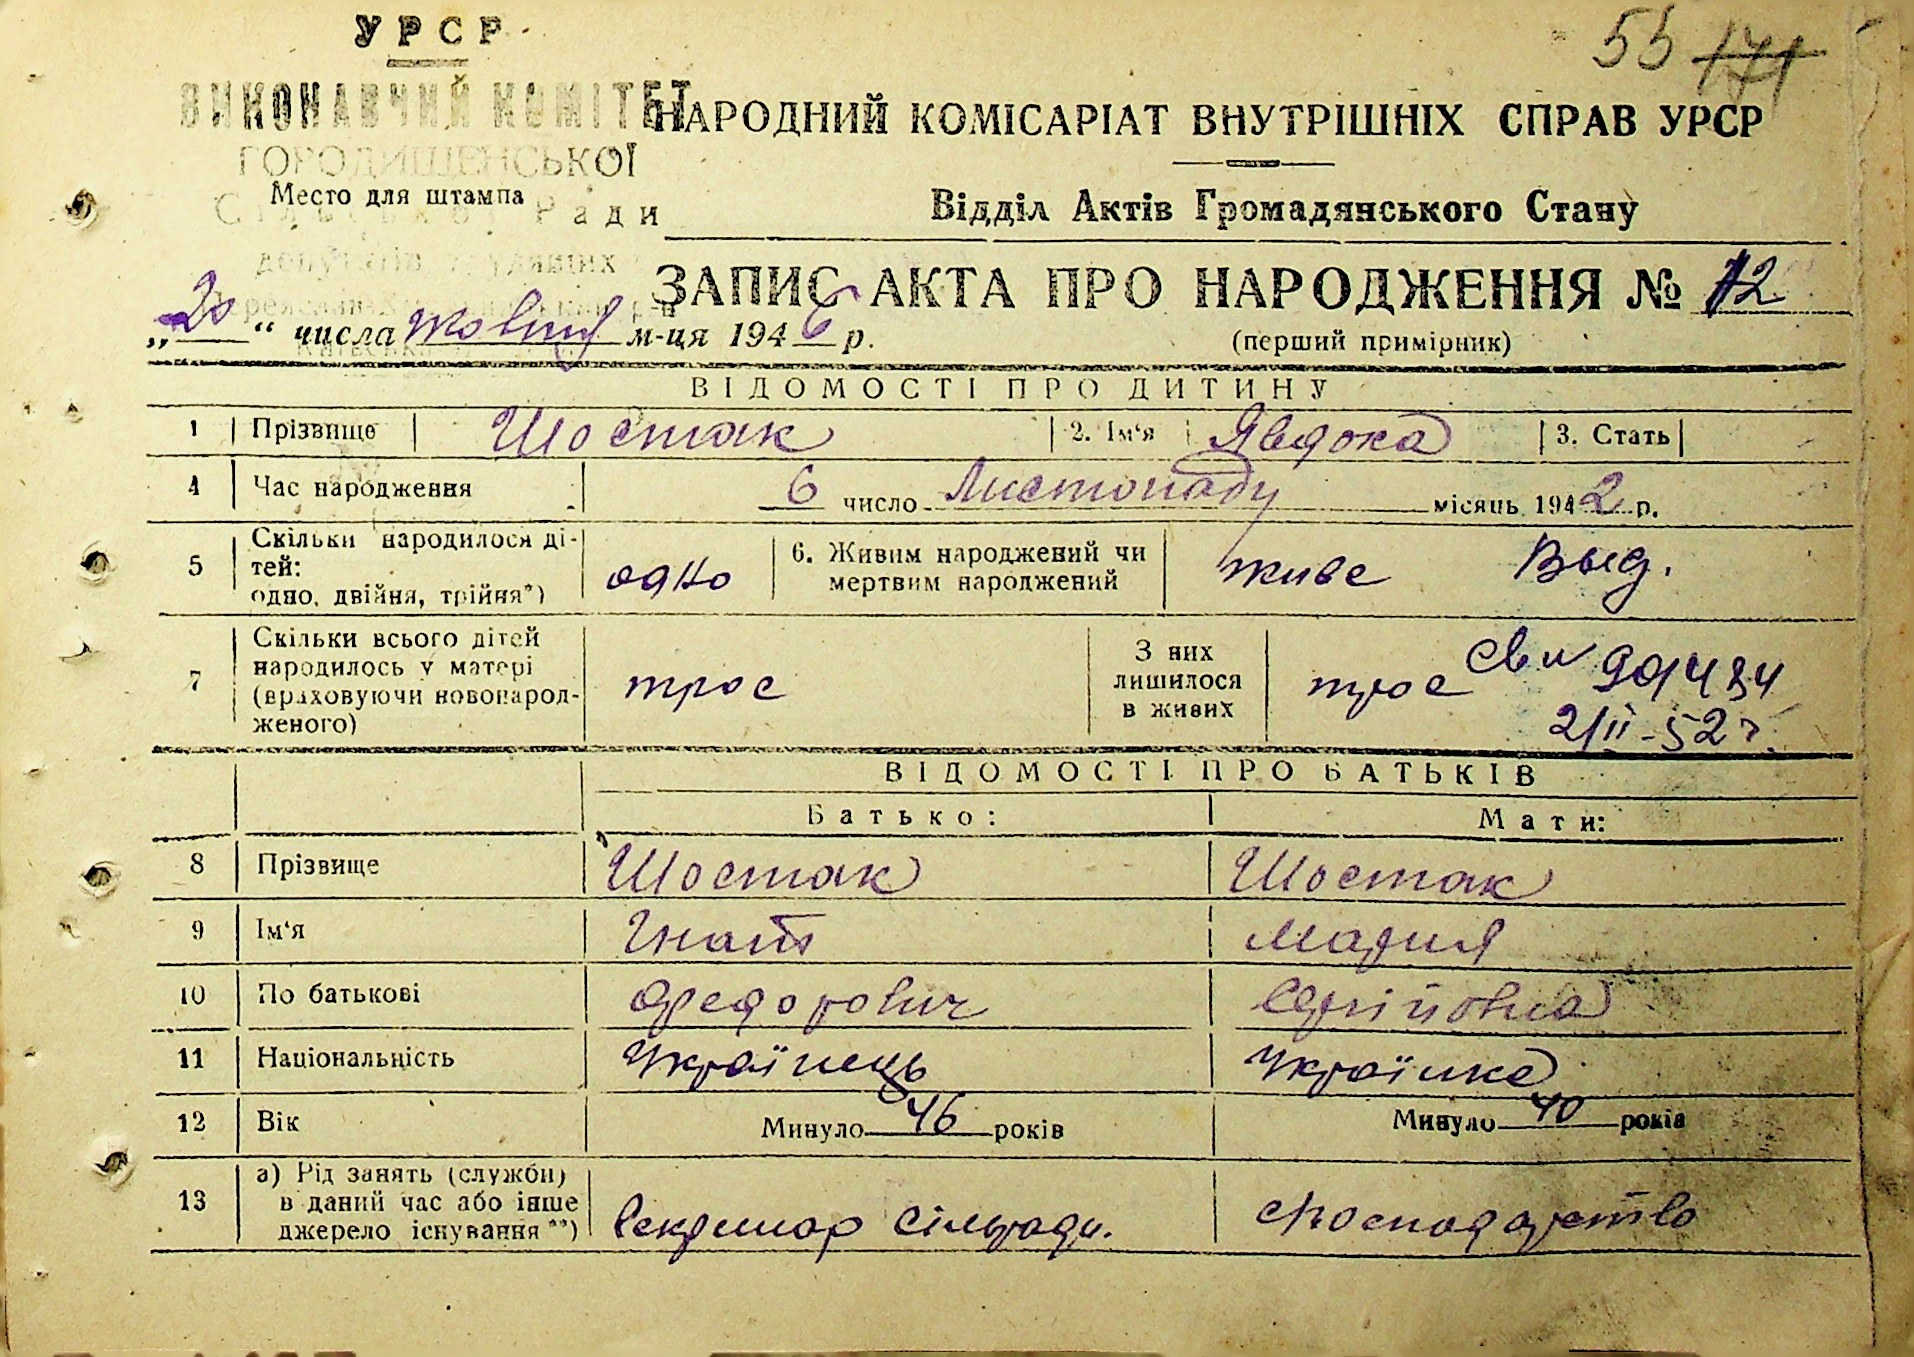 УРСР
55 171
ВИКОНАВЧИЙ КОМІТЕТ
НАРОДНИЙ КОМІСАРІАТ ВНУТРІШНІХ СПРАВ УРСР
ГОРОДИЩЕНСЬКОЇ
Место для штампа
Сільської Ради
Відділ Актів Громадянського Стану
депутатів трудящих
ЗАПИС АКТА ПРО НАРОДЖЕННЯ № 12
„20“ числа жовтня м-ця 1946 р.
(перший примірник)
ВІДОМОСТІ ПРО ДИТИНУ
1 Прізвище Шостак 2. Ім'я Явдока 3. Стать
4 Час народження 6 число Листопаду місяць 1942 р.
5 Скільки народилося ді-
тей:
одно, двійня, трійня*) одно
6. Живим народжений чи
мертвим народжений живе
Выд.
7 Скільки всього дітей
народилось у матері
(враховуючи новонарод-
женого) трое
З них
лишилося
в живих трое
Св и 901484
2/II-52 г.
ВІДОМОСТІ ПРО БАТЬКІВ
Батько: Мати:
8 Прізвище Шостак Шостак
9 Ім'я Гнат Мария
10 По батькові Федорович Сергіївна
11 Національність Українець Українка
12 Вік Минуло 46 років Минуло 40 років
13 а) Рід занять (служби)
в даний час або інше
джерело існування**) Секретар сільради. господарство